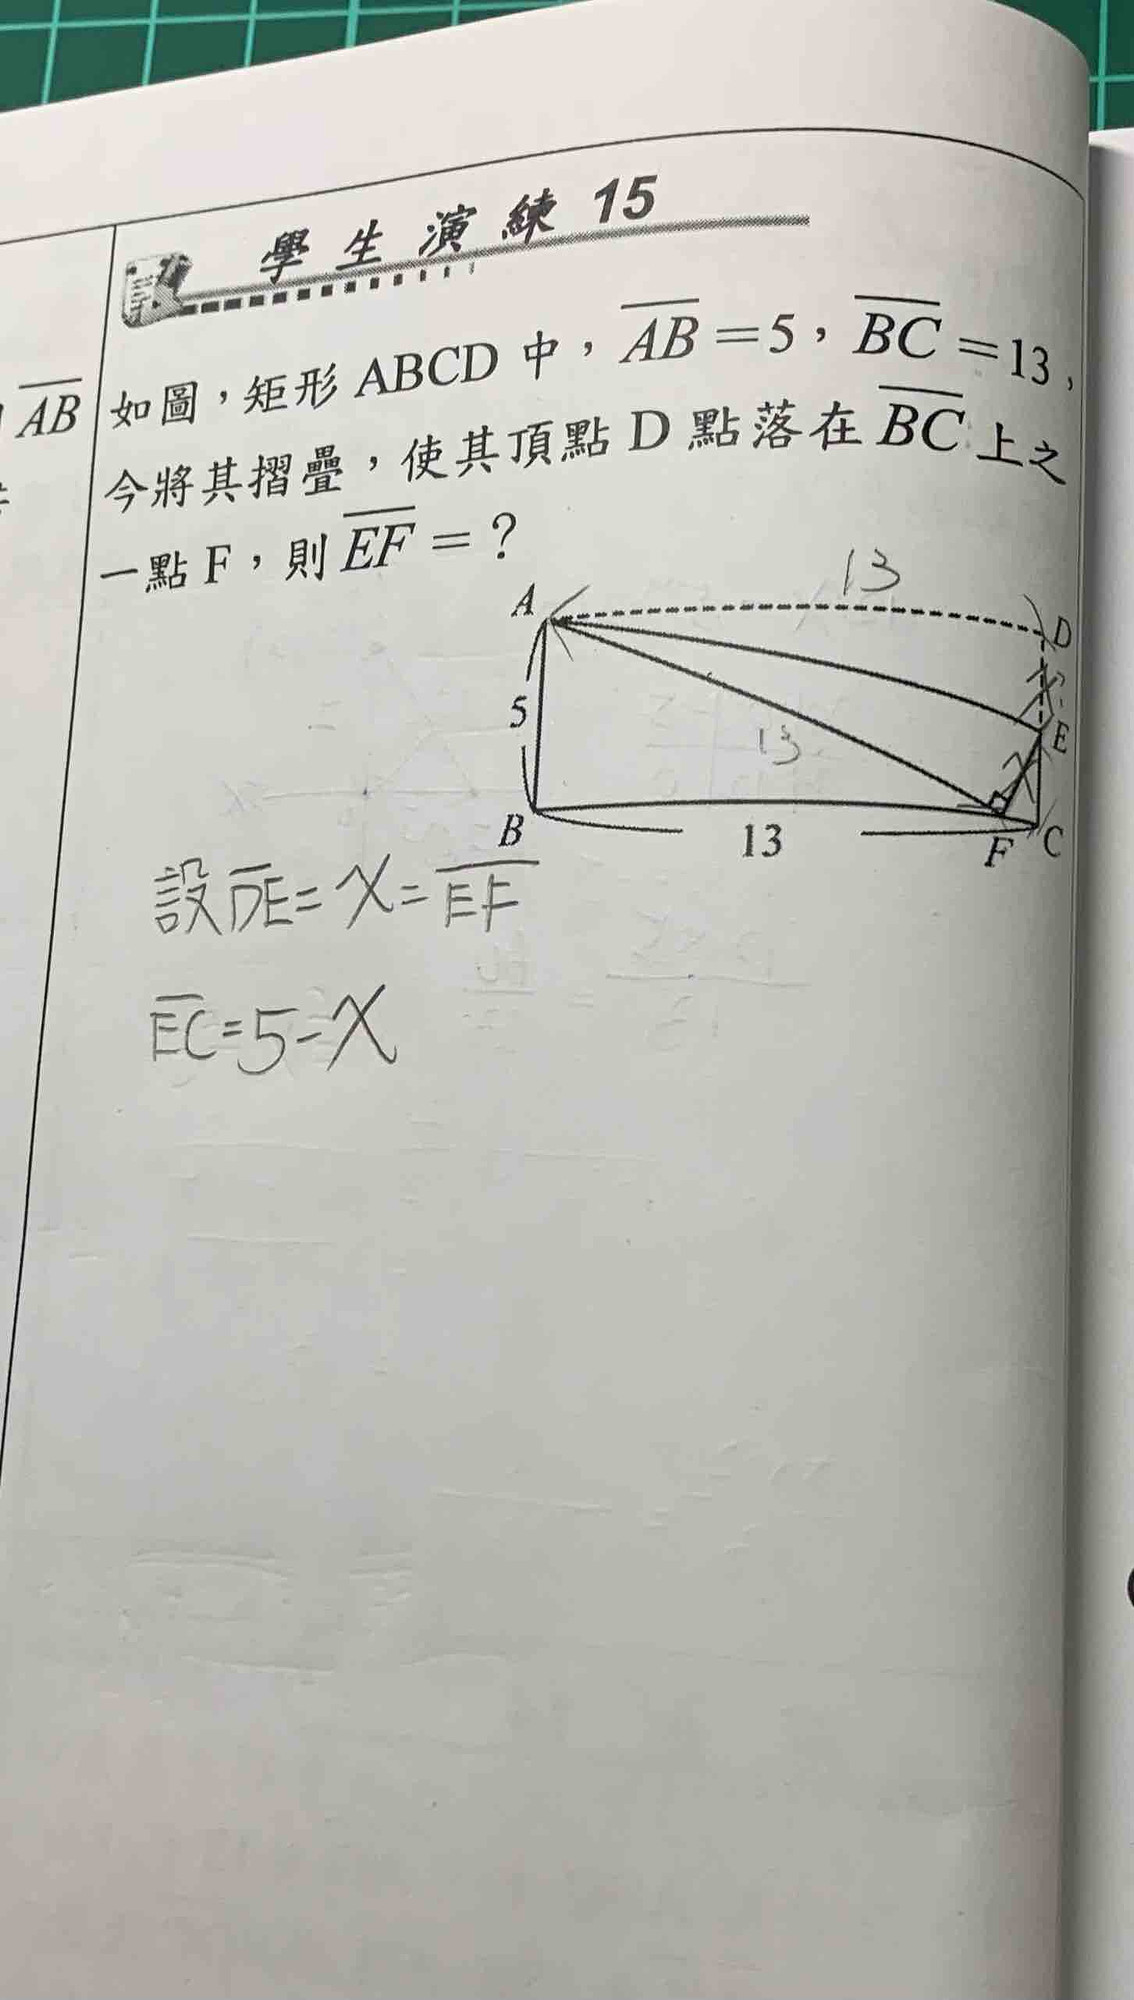 學生演練 15
AB
如圖，矩形 ABCD 中，AB＝5，BC＝13，
今將其摺疊，使其頂點 D 點落在 BC 上之
一點 F，則 EF＝？
13
A
D
x
5
E
13
x
B
13
F
C
設DE=x=EF
EC=5-x